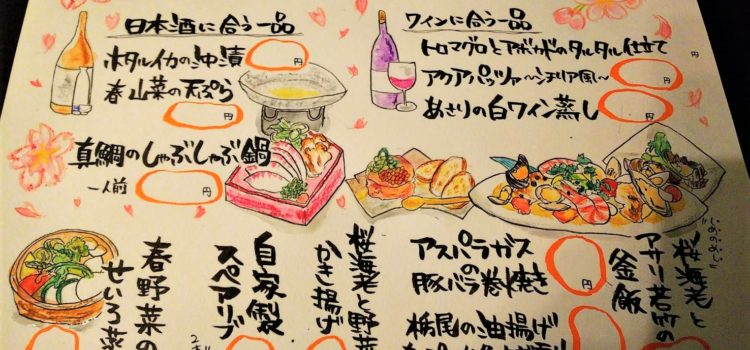 日本酒に合う一品
ホタルイカの沖漬
円
春山菜の天ぷら
円
真鯛のしゃぶしゃぶ鍋
一人前
円
ワインに合う一品
トロマグロとアボカドのタルタル仕立て
円
アクアパッツァ〜シチリア風〜
円
あさりの白ワイン蒸し
円
"じめのめし"
桜海老と
アサリ若竹の
釜飯
アスパラガス
の
豚バラ巻焼き
円
栃尾の油揚げ
桜海老と野菜
かき揚げ
自家製
スペアリブ
春野菜の
せいろ蒸